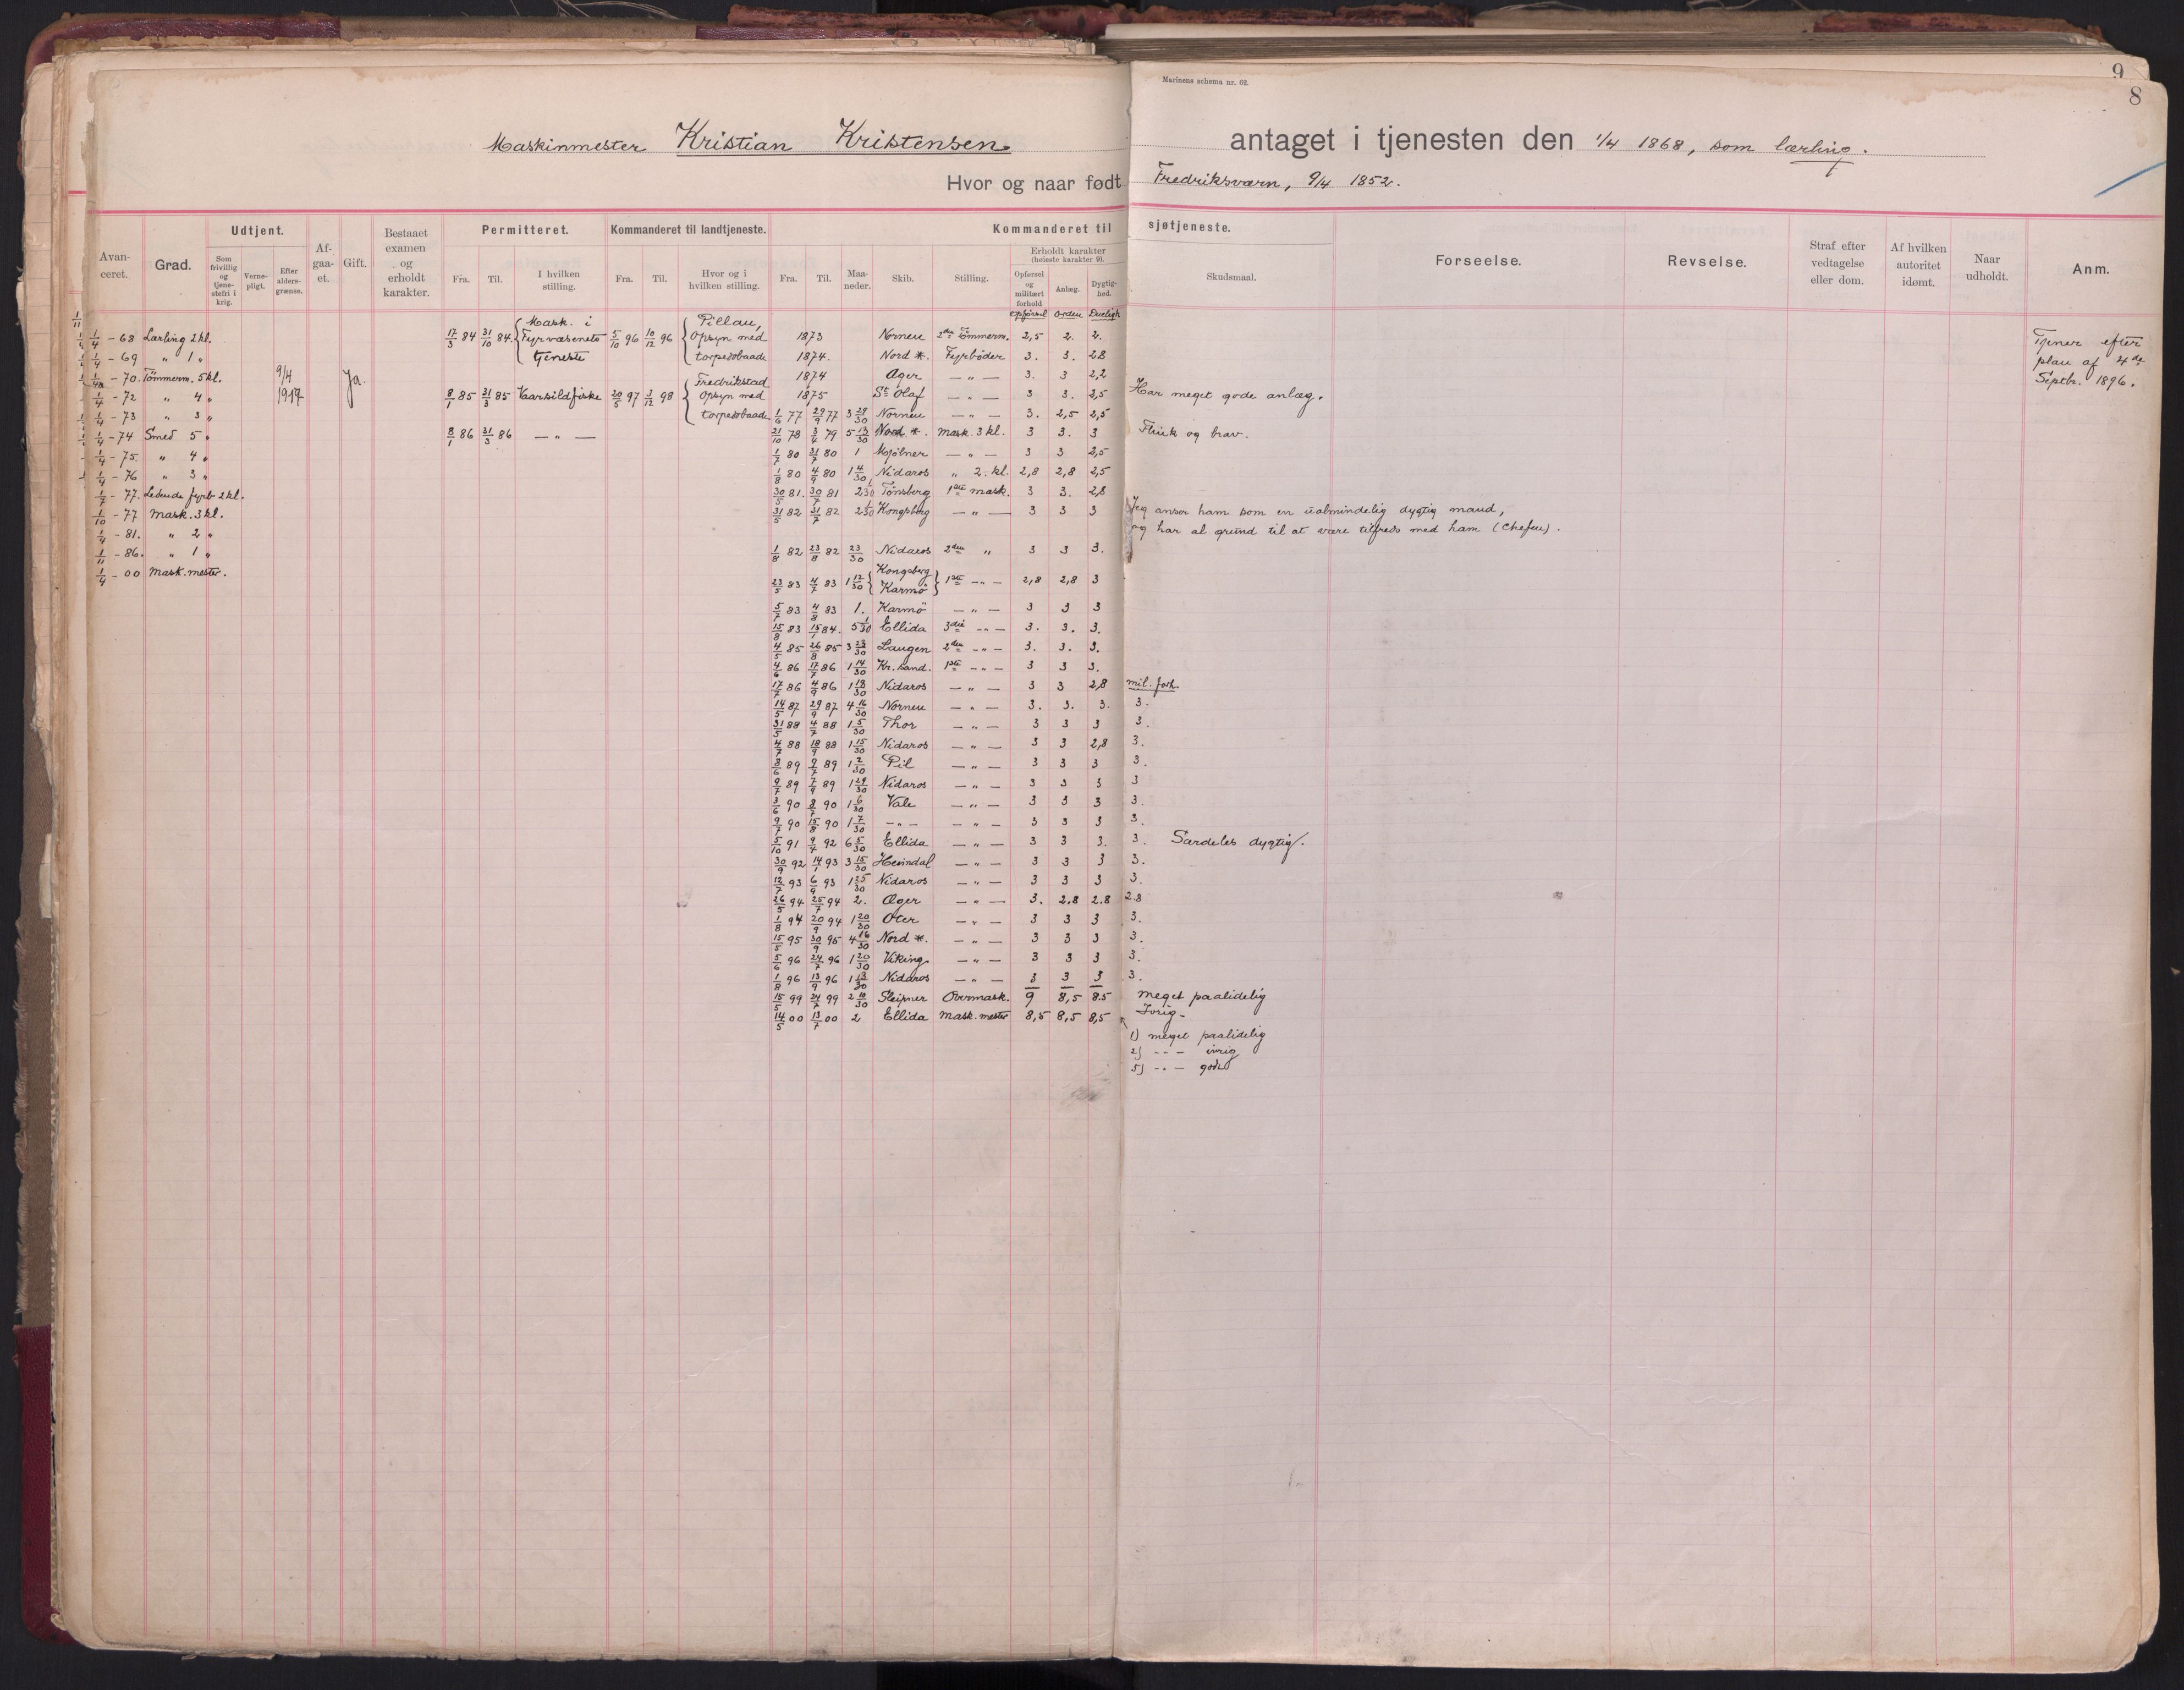 Marinens schema nr. 62.
9
8
Maskinmester Kristian Kristensen antaget i tjenesten den 1/4 1868, som lærling.
Hvor og naar født Fredriksværn, 9/4 1852.
Avanceret. Grad. Udtjent. Afgaaet. Gift. Bestaaet examen og erholdt karakter. Permitteret. Kommanderet til landtjeneste. Kommanderet til sjøtjeneste. Forseelse. Revselse. Straf efter vedtagelse eller dom. Af hvilken autoritet idømt. Naar udholdt. Anm.
Som frivillig og tjenestefri i krig. Vernepligt. Efter aldersgrænse. Fra. Til. I hvilken stilling. Fra. Til. Hvor og i hvilken stilling. Fra. Til. Maaneder. Skib. Stilling. Erholdt karakter (høieste karakter 9). Skudsmaal.
Opførsel og militært forhold Anlæg. Dygtighed.
Opførsel Orden Dueligh
1/4 - 68 Lærling 2 kl.
1/4 - 69 " 1 "
1/4 - 70. Tömmerm. 5 kl.
1/4 - 72 " 4 "
1/4 - 73 " 3 "
1/4 - 74 Smed 5 "
1/4 - 75. " 4 "
1/4 - 76 " 3 "
1/7 - 77. Ledende fyrb. 2 kl.
1/10 - 77 Mask. 3 kl.
1/4 - 81. " 2 "
1/11 - 86. " 1 "
1/4 - 00 Mask.mester.
9/4
1917
Ja.
17/3 84 31/10 84. Mask. i Fyrvæsenets tjeneste
8/1 85 31/3 85 Vaarsildfiske
8/1 86 31/3 86 — " —
5/10 96 10/12 96 Pillau, Opsyn med torpedobaade
20/5 97 3/12 98 Fredrikstad Opsyn med torpedobaade
1873 Nornen 2den Tömmerm. 2,5 2. 2.
1874. Nord *. Fyrbøder 3. 3. 2,8
1874 Æger — " — 3. 3 2,2
1875 St Olaf — " — 3 3. 2,5 Har meget gode anlæg.
1/6 77 29/9 77 3 29/30 Nornen — " — 3. 2,5 2,5
21/10 78 3/4 79 5 13/30 Nord *. Mask. 3 kl. 3 3. 3 Flink og brav.
1/7 80 31/7 80 1 Mjölner — " — 3 3 2,5
1/8 80 4/9 80 1 4/30 Nidaros " 2. kl. 2,8 2,8 2,5
30/5 81. 30/7 81 2 1/30 Tönsberg 1ste mask. 3 3. 2,8
31/5 82 31/7 82 2 1/30 Kongsberg — " — 3 3 3 Jeg anser ham som en ualmindelig dygtig mand,
og har al grund til at være tilfreds med ham (Chefen).
1/8 82 23/8 82 23/30 Nidaros 2den " 3 3 3.
23/5 83 4/7 83 1 12/30 Kongsberg Karmö 1ste — " — 2,8 2,8 3
5/7 83 4/8 83 1. Karmö — " — 3 3 3
15/8 83 15/1 84. 5 1/30 Ellida 3die — " — 3. 3. 3.
4/5 85 26/8 85 3 23/30 Laugen 2den — " — 3. 3. 3.
4/6 86 17/7 86 1 14/30 Kr.sand. 1ste — " — 3 3 3.
17/7 86 4/9 86 1 18/30 Nidaros — " — 3 3 2,8 mil. forh.
14/5 87 29/9 87 4 16/30 Nornen — " — 3. 3. 3. 3.
31/5 88 4/7 88 1 5/30 Thor — " — 3 3 3 3.
4/7 88 18/9 88 1 15/30 Nidaros — " — 3 3 2,8 3.
8/6 89 9/7 89 1 2/30 Pil — " — 3 3 3 3.
9/7 89 7/9 89 1 29/30 Nidaros — " — 3 3 3 3
3/6 90 8/7 90 1 6/30 Vale — " — 3 3 3 3.
9/7 90 15/8 90 1 7/30 — " — — " — 3 3 3 3.
5/10 91 9/4 92 6 5/30 Ellida — " — 3 3 3. 3. Særdeles dygtig.
30/9 92 14/1 93 3 15/30 Heimdal — " — 3 3 3 3.
12/7 93 6/9 93 1 25/30 Nidaros — " — 3 3 3 3.
26/5 94 25/7 94 2. Æger — " — 3. 2,8 2.8 2.8
1/8 94 20/9 94 1 20/30 Oter — " — 3 3 3 3.
15/5 95 30/9 95 4 16/30 Nord *. — " — 3 3 3 3.
5/6 96 24/7 96 1 20/30 Viking — " — 3 3 3 3.
1/8 96 13/9 96 1 13/30 Nidaros — " — 3 3 3 3.
15/5 99 24/7 99 2 10/30 Sleipner Overmask. 9 8,5 8.5 meget paalidelig
14/5 00 13/7 00 2 Ellida Mask.mester 8,5 8,5 8,5 Ivrig
1) meget paalidelig
2) - " - ivrig
5) - " - god
Tjener efter
plan af 4de
Septbr. 1896.